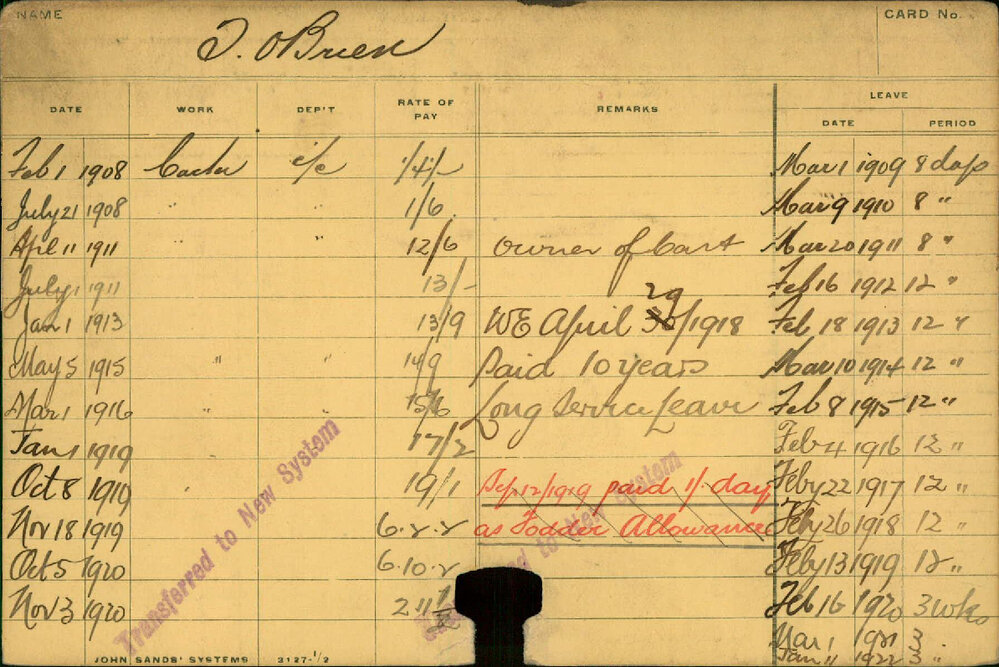 NAME
CARD No.
T. O'Brien
DATE WORK DEP'T RATE OF PAY REMARKS LEAVE
DATE PERIOD
Feb 1 1908 Carter i/c Mar 1 1909 8 days
July 21 1908 " " 1/6 Mar 9 1910 8 "
April 11 1911 " 12/6 Owner of Cart Mar 20 1911 8 "
July 1 1911 13/- Feb 16 1912 12 "
29
Jan 1 1913 13/9 WE April 30/1918 Feb 18 1913 12 "
May 5 1915 " " 14/9 Paid 10 years Mar 10 1914 12 "
Mar 1 1916 " " Long Service Leave Feb 8 1915 12 "
Jan 1 1919 17/2 Feb 4 1916 12 "
Oct 8 1919 19/1 Sep 12/1919 paid 1/- day Feby 22 1917 12 "
Nov 18 1919 6.2.2 as Fodder Allowance Feby 26 1918 12 "
Oct 5 1920 6.10.2 Feby 13 1919 12 "
Nov 3 1920 Feb 16 1920 3 wks
Mar 1 1921 3 "
Jan 11 1922 3 "
Transferred to New System
JOHN SANDS' SYSTEMS 3127-1/2